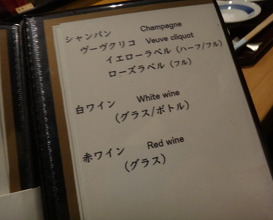 シャンパン Champagne
ヴーヴクリコ Veuve cliquot
イエローラベル (ハーフ/フル)
ローズラベル (フル)
白ワイン White wine
(グラス/ボトル)
赤ワイン Red wine
(グラス)